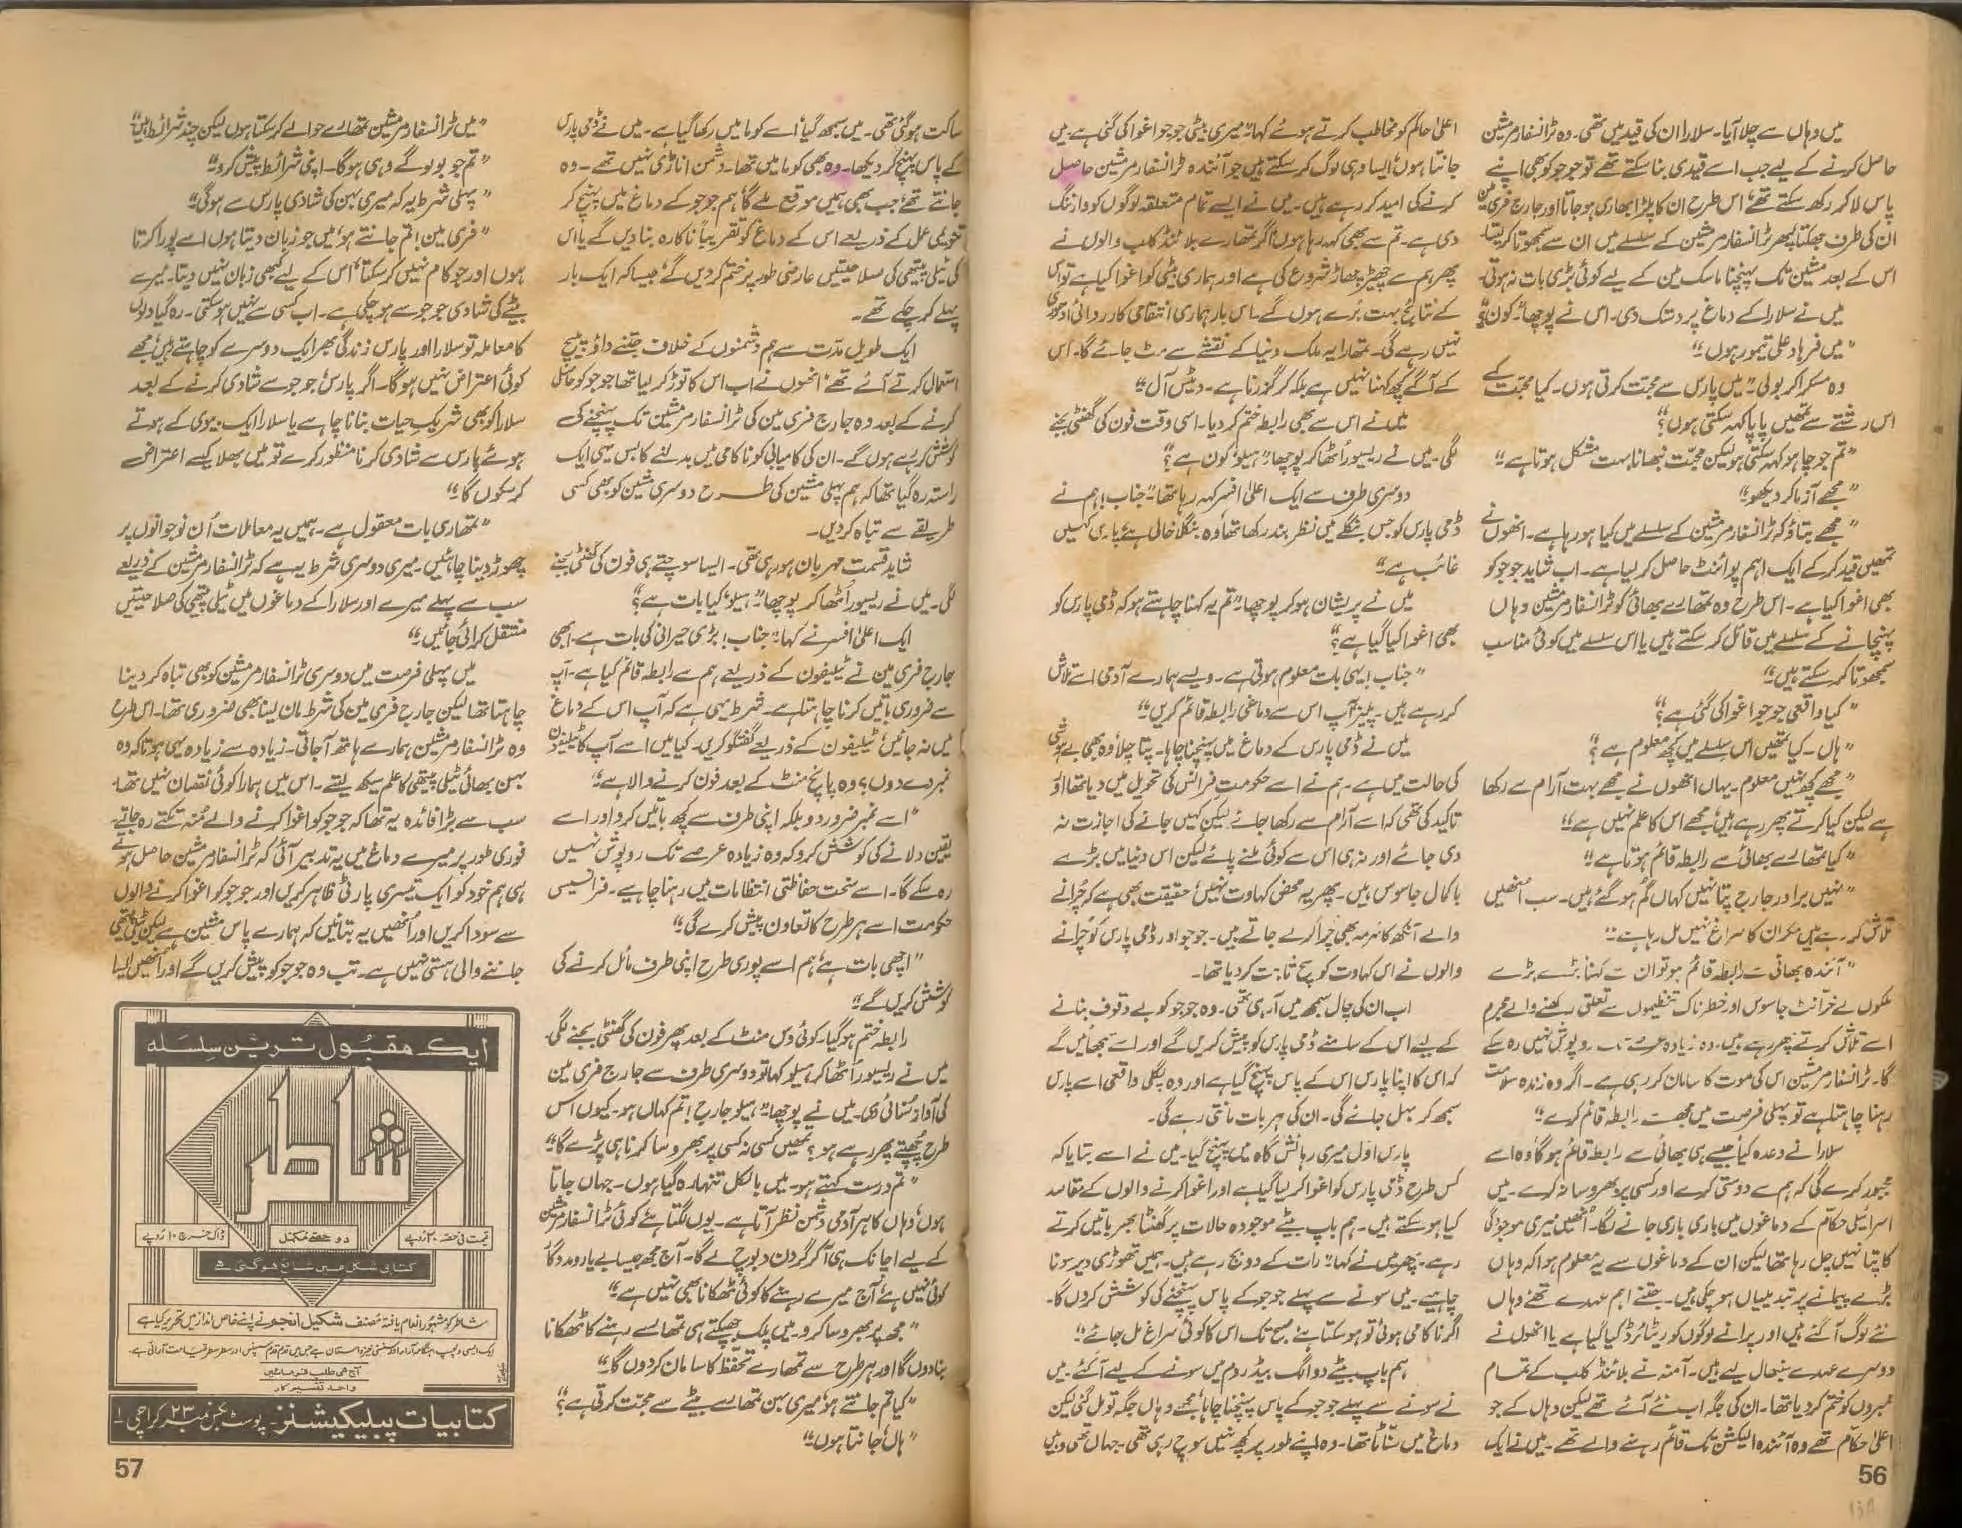 میں وہاں سے چلا آیا۔ سلارا ان کی قید میں تھی۔ وہ ٹرانسفارمر مشین
حاصل کرنے کے لیے جب اسے قیدی بنا سکتے تھے تو جوجو کو بھی اپنے
پاس لا کر رکھ سکتے تھے، اس طرح ان کا پلڑا بھاری ہو جاتا اور جارج فری مین
ان کی طرف جھکتا پھر ٹرانسفارمر مشین کے سلسلے میں ان سے سمجھوتا کر لیتا۔
اس کے بعد مشین تک پہنچنا ماسک مین کے لیے کوئی بڑی بات نہ ہوتی۔
میں نے سلارا کے دماغ پر دستک دی۔ اس نے پوچھا "کون؟"
"میں فرہاد علی تیمور ہوں"
وہ مسکرا کر بولی "میں پارس سے محبت کرتی ہوں۔ کیا محبت کے
اس رشتے سے تمھیں پاپا کہہ سکتی ہوں؟"
"تم جو چاہو کہہ سکتی ہو لیکن محبت نبھانا بہت مشکل ہوتا ہے"
"مجھے آزما کر دیکھو"
"مجھے بتاؤ کہ ٹرانسفارمر مشین کے سلسلے میں کیا ہو رہا ہے۔ انھوں نے
تمھیں قید کر کے ایک اہم پوائنٹ حاصل کر لیا ہے۔ اب شاید جوجو کو
بھی اغوا کیا ہے۔ اس طرح وہ تمھارے بھائی کو ٹرانسفارمر مشین وہاں
پہنچانے کے سلسلے میں قائل کر سکتے ہیں یا اس سلسلے میں کوئی مناسب
سمجھوتا کر سکتے ہیں"
"کیا واقعی جوجو اغوا کی گئی ہے؟"
"ہاں۔ کیا تمھیں اس سلسلے میں کچھ معلوم ہے؟"
"مجھے کچھ نہیں معلوم۔ یہاں انھوں نے مجھے بہت آرام سے رکھا
ہے لیکن کیا کرتے پھر رہے ہیں، مجھے اس کا علم نہیں ہے"
"کیا تمھارے بھائی سے رابطہ قائم ہوتا ہے"
"نہیں برادر جارج پتا نہیں کہاں گم ہو گئے ہیں۔ سب انھیں
تلاش کر رہے ہیں مگر ان کا سراغ نہیں مل رہا ہے"
"آئندہ بھائی سے رابطہ قائم ہو تو ان سے کہنا بڑے بڑے
ملکوں کے خرانٹ جاسوس اور خطرناک تنظیموں سے تعلق رکھنے والے مجرم
اسے تلاش کرتے پھر رہے ہیں۔ وہ زیادہ عرصے تک روپوش نہیں رہ سکے
گا۔ ٹرانسفارمر مشین اس کی موت کا سامان کر رہی ہے۔ اگر وہ زندہ سلامت
رہنا چاہتا ہے تو پہلی فرصت میں مجھ سے رابطہ قائم کرے"
سلارا نے وعدہ کیا جیسے ہی بھائی سے رابطہ قائم ہوگا وہ اسے
مجبور کرے گی کہ ہم سے دوستی کرے اور کسی پر بھروسا نہ کرے۔ میں
اسرائیلی حکام کے دماغوں میں باری باری جانے لگا۔ انھیں میری موجودگی
کا پتا نہیں چل رہا تھا لیکن ان کے دماغوں سے یہ معلوم ہوا کہ وہاں
بڑے پیمانے پر تبدیلیاں ہو چکی ہیں۔ جتنے اہم عہدے تھے وہاں
نئے لوگ آ گئے ہیں اور پرانے لوگوں کو ریٹائرڈ کیا گیا ہے یا انھوں نے
دوسرے عہدے سنبھال لیے ہیں۔ آمنہ نے بلائنڈ کلب کے تمام
ممبروں کو ختم کر دیا تھا۔ ان کی جگہ اب نئے آئے تھے لیکن وہاں کے جو
اعلیٰ حکام تھے وہ آئندہ الیکشن تک قائم رہنے والے تھے۔ میں نے ایک
56
اعلیٰ حاکم کو مخاطب کرتے ہوئے کہا "میری بیٹی جوجو اغوا کی گئی ہے۔ میں
جانتا ہوں، ایسا وہی لوگ کر سکتے ہیں جو آئندہ ٹرانسفارمر مشین حاصل
کرنے کی امید کر رہے ہیں۔ میں نے ایسے تمام متعلقہ لوگوں کو وارننگ
دی ہے۔ تم سے بھی کہہ رہا ہوں، اگر تمھارے بلائنڈ کلب والوں نے
پھر ہم سے چھیڑ چھاڑ شروع کی ہے اور ہماری بیٹی کو اغوا کیا ہے تو اس
کے نتائج بہت برے ہوں گے۔ اس بار ہماری انتقامی کارروائی ادھوری
نہیں رہے گی۔ تمھارا یہ ملک دنیا کے نقشے سے مٹ جائے گا۔ اس
کے آگے کچھ کہنا نہیں ہے بلکہ کر گزرنا ہے۔ دیٹس آل"
میں نے اس سے بھی رابطہ ختم کر دیا۔ اسی وقت فون کی گھنٹی بجنے
لگی۔ میں نے ریسیور اٹھا کر پوچھا "ہیلو، کون ہے؟"
دوسری طرف سے ایک اعلیٰ افسر کہہ رہا تھا "جناب! ہم نے
ڈمی پارس کو جس بنگلے میں نظر بند رکھا تھا، وہ بنگلا خالی ہے، پارس کہیں
غائب ہے"
میں نے پریشان ہو کر پوچھا "تم یہ کہنا چاہتے ہو کہ ڈمی پارس کو
بھی اغوا کیا گیا ہے؟"
"جناب! یہی بات معلوم ہوتی ہے۔ ویسے ہمارے آدمی اسے تلاش
کر رہے ہیں۔ پلیز آپ اس سے دماغی رابطہ قائم کریں"
میں نے ڈمی پارس کے دماغ میں پہنچنا چاہا۔ پتا چلا، وہ بھی بے ہوشی
کی حالت میں ہے۔ ہم نے اسے حکومت فرانس کی تحویل میں دیا تھا اور
تاکید کی تھی کہ اسے آرام سے رکھا جائے لیکن کہیں جانے کی اجازت نہ
دی جائے اور نہ ہی اس سے کوئی ملنے پائے لیکن اس دنیا میں بڑے
باکمال جاسوس ہیں۔ پھر یہ محض کہاوت نہیں، حقیقت بھی ہے کہ چرانے
والے آنکھ کا سرمہ بھی چرا کر لے جاتے ہیں۔ جوجو اور ڈمی پارس کو چرانے
والوں نے اس کہاوت کو سچ ثابت کر دیا تھا۔
اب ان کی چال سمجھ میں آ رہی تھی۔ وہ جوجو کو بے وقوف بنانے
کے لیے اس کے سامنے ڈمی پارس کو پیش کریں گے اور اسے سمجھائیں گے
کہ اس کا اپنا پارس اس کے پاس پہنچ گیا ہے اور وہ پگلی واقعی اسے پارس
سمجھ کر بہل جائے گی۔ ان کی ہر بات مانتی رہے گی۔
پارس اول میری رہائش گاہ میں پہنچ گیا۔ میں نے اسے بتایا کہ
کس طرح ڈمی پارس کو اغوا کر لیا گیا ہے اور اغوا کرنے والوں کے مقاصد
کیا ہو سکتے ہیں۔ ہم باپ بیٹے موجودہ حالات پر گھنٹا بھر باتیں کرتے
رہے۔ پھر میں نے کہا "رات کے دو بج رہے ہیں۔ ہمیں تھوڑی دیر سونا
چاہیے۔ میں سونے سے پہلے جوجو کے پاس پہنچنے کی کوشش کروں گا۔
اگر ناکامی ہوئی تو ہو سکتا ہے، صبح تک اس کا کوئی سراغ مل جائے"
ہم باپ بیٹے دو الگ بیڈروم میں سونے کے لیے آ گئے۔ میں
نے سونے سے پہلے جوجو کے پاس پہنچنا چاہا، مجھے وہاں جگہ تو مل گئی لیکن
دماغ میں سناٹا تھا۔ وہ اپنے طور پر کچھ نہیں سوچ رہی تھی۔ جہاں تھی وہیں
ساکت ہو گئی تھی۔ میں سمجھ گیا، اسے کوما میں رکھا گیا ہے۔ میں نے ڈمی پارس
کے پاس پہنچ کر دیکھا۔ وہ بھی کوما میں تھا۔ دشمن اناڑی نہیں تھے۔ وہ
جانتے تھے، جب بھی ہمیں موقع ملے گا، ہم جوجو کے دماغ میں پہنچ کر
تنویمی عمل کے ذریعے اس کے دماغ کو تقریباً ناکارہ بنا دیں گے یا اس
کی ٹیلی پیتھی کی صلاحیتیں عارضی طور پر ختم کر دیں گے، جیسا کہ ایک بار
پہلے کر چکے تھے۔
ایک طویل مدت سے ہم دشمنوں کے خلاف جتنے داؤ پیچ
استعمال کرتے آئے تھے، انھوں نے اب اس کا توڑ کر لیا تھا جوجو کو حاصل
کرنے کے بعد وہ جارج فری مین کی ٹرانسفارمر مشین تک پہنچنے کی
کوشش کر رہے ہوں گے۔ ان کی کامیابی کو ناکامی میں بدلنے کا بس یہی ایک
راستہ رہ گیا تھا کہ ہم پہلی مشین کی طرح دوسری مشین کو بھی کسی
طریقے سے تباہ کر دیں۔
شاید قسمت مہربان ہو رہی تھی۔ ایسا سوچتے ہی فون کی گھنٹی بجنے
لگی۔ میں نے ریسیور اٹھا کر پوچھا "ہیلو، کیا بات ہے؟"
ایک اعلیٰ افسر نے کہا "جناب! بڑی حیرانی کی بات ہے۔ ابھی
جارج فری مین نے ٹیلیفون کے ذریعے ہم سے رابطہ قائم کیا ہے۔ آپ
سے ضروری باتیں کرنا چاہتا ہے۔ شرط یہی ہے کہ آپ اس کے دماغ
میں نہ جائیں، ٹیلیفون کے ذریعے گفتگو کریں۔ کیا میں اسے آپ کا ٹیلیفون
نمبر دے دوں؟ وہ پانچ منٹ کے بعد فون کرنے والا ہے"
"اسے نمبر ضرور دو بلکہ اپنی طرف سے کچھ باتیں کرو اور اسے
یقین دلانے کی کوشش کرو کہ وہ زیادہ عرصے تک روپوش نہیں
رہ سکے گا۔ اسے سخت حفاظتی انتظامات میں رہنا چاہیے۔ فرانسیسی
حکومت اسے ہر طرح کا تعاون پیش کرے گی"
"اچھی بات ہے، ہم اسے پوری طرح اپنی طرف مائل کرنے کی
کوشش کریں گے"
رابطہ ختم ہو گیا۔ کوئی دس منٹ کے بعد پھر فون کی گھنٹی بجنے لگی۔
میں نے ریسیور اٹھا کر ہیلو کہا تو دوسری طرف سے جارج فری مین
کی آواز سنائی دی۔ میں نے پوچھا "ہیلو جارج! تم کہاں ہو۔ کیوں اس
طرح چھپتے پھر رہے ہو؟ تمھیں کسی نہ کسی پر بھروسا کرنا ہی پڑے گا"
"تم درست کہتے ہو۔ میں بالکل تنہا رہ گیا ہوں۔ جہاں جاتا
ہوں، وہاں کا ہر آدمی دشمن نظر آتا ہے۔ یوں لگتا ہے، کوئی ٹرانسفارمر مشین
کے لیے اچانک ہی آ کر گردن دبوچ لے گا۔ آج مجھ جیسا بے یار و مددگار
کوئی نہیں ہے، آج میرے رہنے کا کوئی ٹھکانا بھی نہیں ہے"
"مجھ پر بھروسا کرو۔ میں پلک جھپکتے ہی تمھارے رہنے کا ٹھکانا
بنا دوں گا اور ہر طرح سے تمھارے تحفظ کا سامان کر دوں گا"
"کیا تم جانتے ہو، میری بہن تمھارے بیٹے سے محبت کرتی ہے؟"
"ہاں، جانتا ہوں"
"میں ٹرانسفارمر مشین تمھارے حوالے کر سکتا ہوں لیکن چند شرائط ہیں"
"تم جو بولو گے وہی ہوگا۔ اپنی شرائط پیش کرو"
"پہلی شرط یہ کہ میری بہن کی شادی پارس سے ہوگی"
"فری مین! تم جانتے ہو، میں جو زبان دیتا ہوں اسے پورا کرتا
ہوں اور جو کام نہیں کر سکتا، اس کے لیے کبھی زبان نہیں دیتا۔ میرے
بیٹے کی شادی جوجو سے ہو چکی ہے۔ اب کسی سے نہیں ہو سکتی۔ رہ گیا دلوں
کا معاملہ تو سلارا اور پارس زندگی بھر ایک دوسرے کو چاہتے رہیں، مجھے
کوئی اعتراض نہیں ہوگا۔ اگر پارس، جوجو سے شادی کرنے کے بعد
سلارا کو بھی شریک حیات بنانا چاہے یا سلارا ایک بیوی کے ہوتے
ہوئے پارس سے شادی کرنا منظور کرے تو میں بھلا کیسے اعتراض
کر سکوں گا"
"تمھاری بات معقول ہے۔ ہمیں یہ معاملات ان نوجوانوں پر
چھوڑ دینا چاہئیں۔ میری دوسری شرط یہ ہے کہ ٹرانسفارمر مشین کے ذریعے
سب سے پہلے میرے اور سلارا کے دماغوں میں ٹیلی پیتھی کی صلاحیتیں
منتقل کرائی جائیں"
میں پہلی فرصت میں دوسری ٹرانسفارمر مشین کو بھی تباہ کر دینا
چاہتا تھا لیکن جارج فری مین کی شرط مان لینا بھی ضروری تھا۔ اس طرح
وہ ٹرانسفارمر مشین ہمارے ہاتھ آ جاتی۔ زیادہ سے زیادہ یہی ہوتا کہ وہ
بہن بھائی ٹیلی پیتھی کا علم سیکھ لیتے۔ اس میں ہمارا کوئی نقصان نہیں تھا۔
سب سے بڑا فائدہ یہ تھا کہ جوجو کو اغوا کرنے والے منہ تکتے رہ جاتے۔
فوری طور پر میرے دماغ میں یہ تدبیر آئی کہ ٹرانسفارمر مشین حاصل ہوتے
ہی ہم خود کو ایک تیسری پارٹی ظاہر کریں اور جوجو کو اغوا کرنے والوں
سے سودا کریں اور انھیں یہ بتائیں کہ ہمارے پاس مشین ہے لیکن ٹیلی پیتھی
جاننے والی ہستی نہیں ہے۔ تب وہ جوجو کو پیش کریں گے اور انھیں ایسا
ایک مقبول ترین سلسلہ
شاطر
قیمت فی حصہ ۲۰ روپے
دو حصے مکمل
ڈاک خرچ ۱۰ روپے
کتابی شکل میں شائع ہو گئی ہے
شاطر کو مشہور انعام یافتہ مصنف شکیل انجم نے اپنے خاص انداز میں تحریر کیا ہے
آج ہی طلب فرمائیں
واحد تقسیم کار
کتابیات پبلیکیشنز۔ پوسٹ بکس نمبر ۲۳ کراچی ۱
57